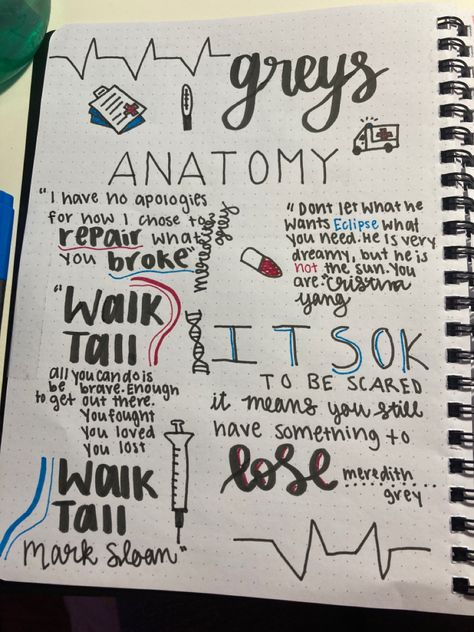 greys
ANATOMY
"I have no apologies
for how I chose to
repair what
you broke"
meredith
grey
"Dont let what he
wants Eclipse what
you need. He is very
dreamy, but he is
not the sun. You
are." Cristina
yang
"Walk
Tall
all you can do is
be brave. Enough
to get out there.
You fought
You loved
You lost
Walk
Tall
Mark Sloan"
ITSOK
TO BE SCARED
it means you still
have something to
lose
meredith
grey